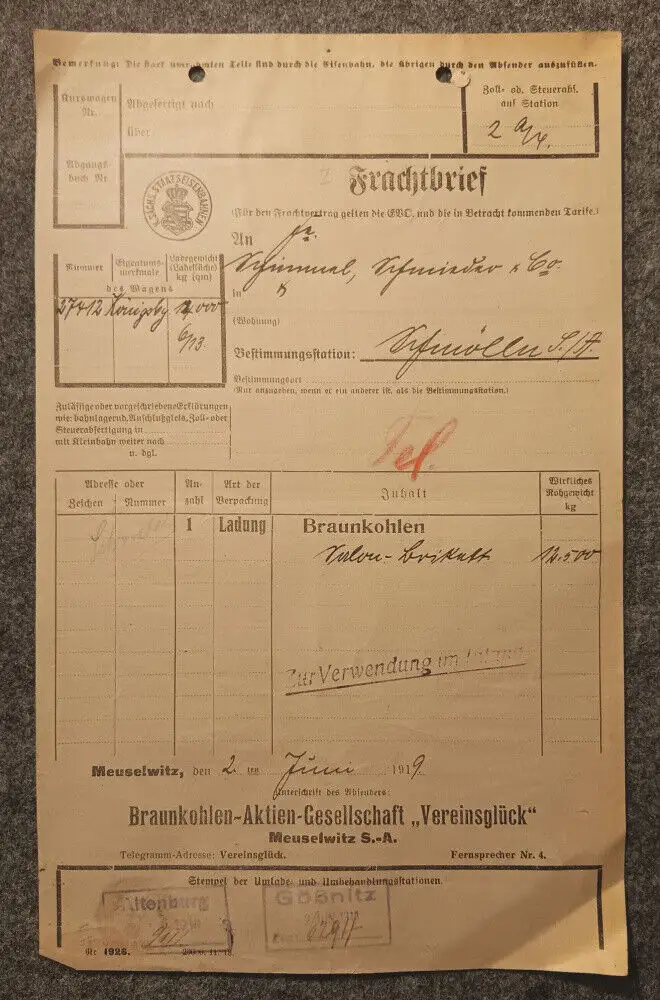 Bemerkung: Die stark umrahmten Teile sind durch die Eisenbahn, die übrigen durch den Absender auszufüllen.
Kurswagen
Nr.
Abgangs-
buch Nr.
Abgefertigt nach
über
Zoll- od. Steuerabf.
auf Station
K. SÄCHS. STAATSEISENBAHNEN
Frachtbrief
(Für den Frachtvertrag gelten die EVO. und die in Betracht kommenden Tarife.)
An
Schimmel, Schmieder & Co.
in
(Wohnung)
Bestimmungsstation: Schmölln S./A.
Bestimmungsort
(Nur anzugeben, wenn er ein anderer ist, als die Bestimmungsstation.)
Nummer
Eigentums-
merkmale
Ladegewicht
(Ladefläche)
kg (qm)
des Wagens
37412 Königsbg
6/13
Zulässige oder vorgeschriebene Erklärungen
wie: bahnlagernd, Anschlußgleis, Zoll- oder
Steuerabfertigung in
mit Kleinbahn weiter nach
u. dgl.
Tel.
Adresse oder
Zeichen
Nummer
An-
zahl
Art der
Verpackung
Inhalt
Wirkliches
Rohgewicht
kg
1 Ladung Braunkohlen
Salon-Brikett 12.500
Zur Verwendung im
Meuselwitz, den 2. ten Juni 1919.
Unterschrift des Absenders:
Braunkohlen-Aktien-Gesellschaft „Vereinsglück“
Meuselwitz S.-A.
Telegramm-Adresse: Vereinsglück. Fernsprecher Nr. 4.
Stempel der Umlade- und Umbehandlungsstationen.
Altenburg
Gößnitz
Nr 1926.